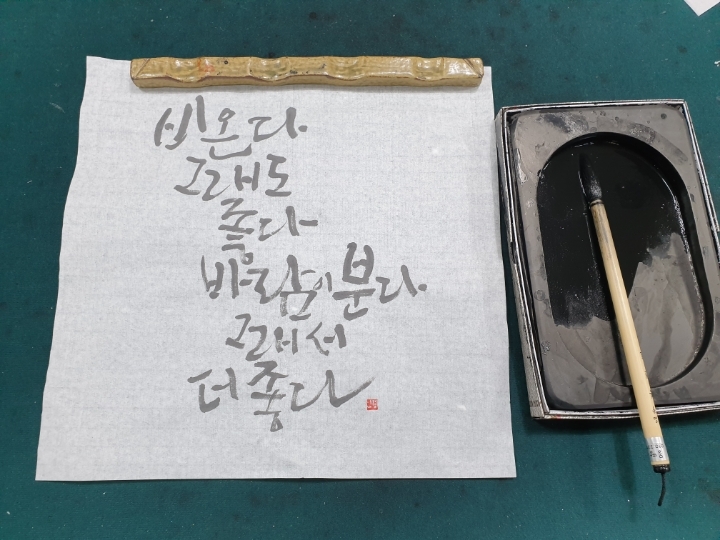 비온다
그래도
좋다
바람이분다
그래서
더좋다